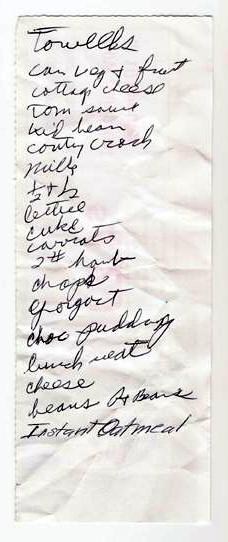 Towells
can veg + fruit
cottag cheese
Tom sauce
kid bean
contry crock
milk
½ + ½
lettice
cuke
carrots
2# hamb
chops
yogort
choc pudding
lunch meat
cheese
beans B+Beans
Instant Oatmeal